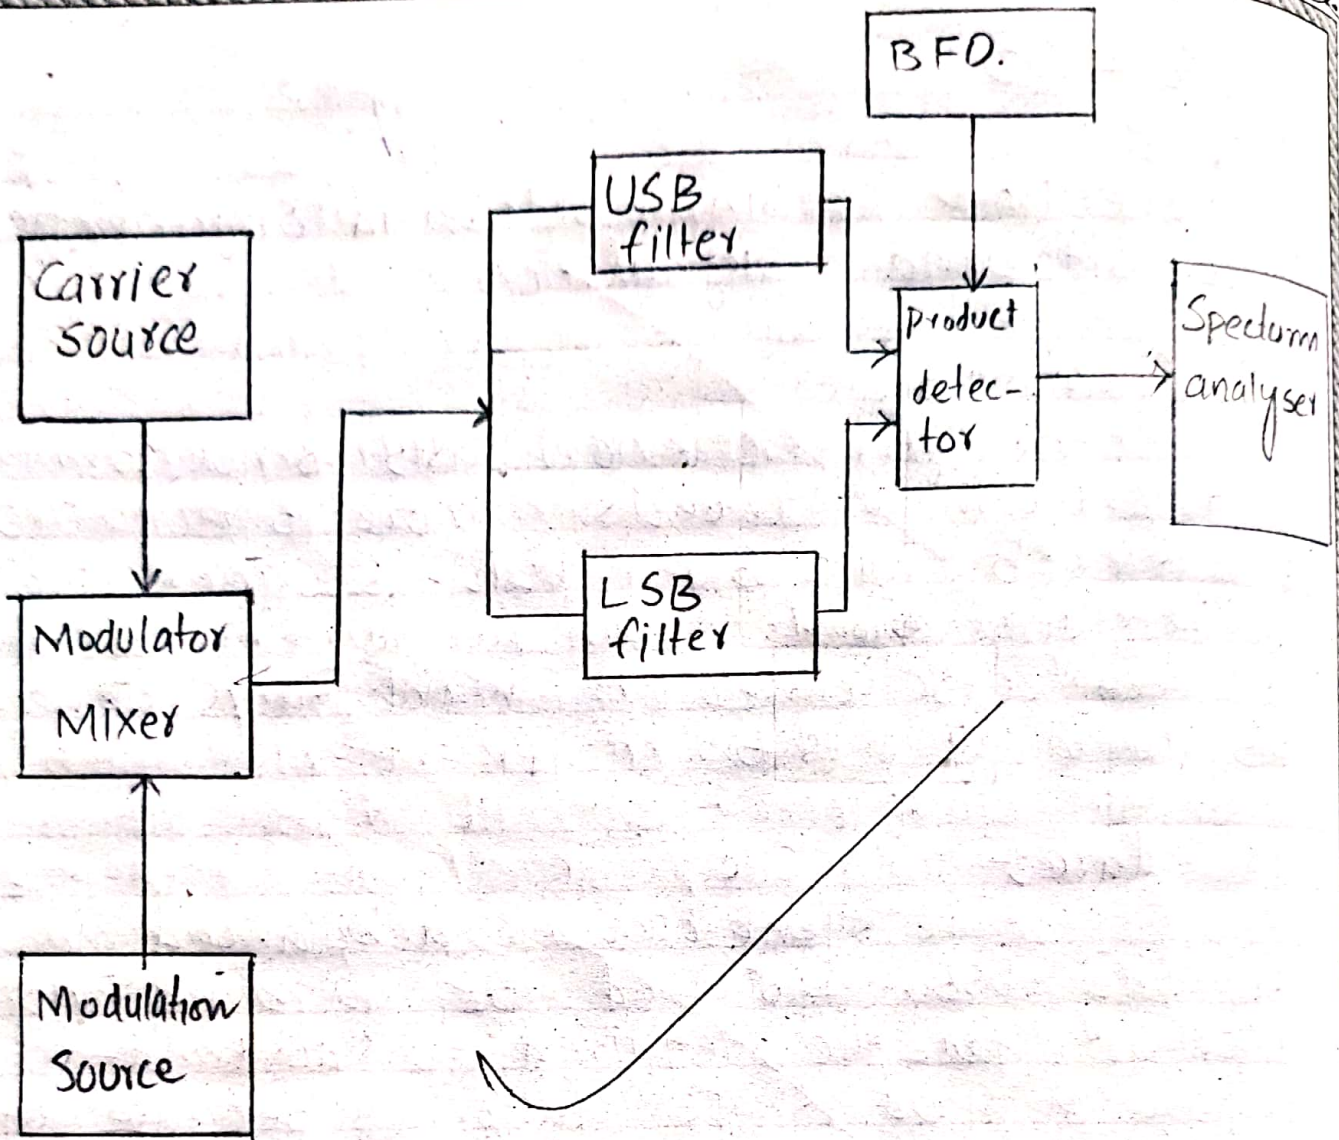 BFO.
USB
filter
Carrier
source
Product
detec-
tor
Specturm
analyser
LSB
filter
Modulator
Mixer
Modulation
Source